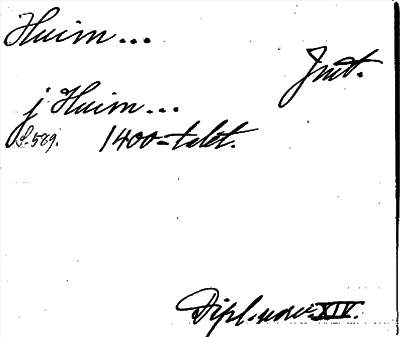 Huim...
Jmt.
j Huim...
S. 589. 1400-talet.
Dipl. norv. XIV.